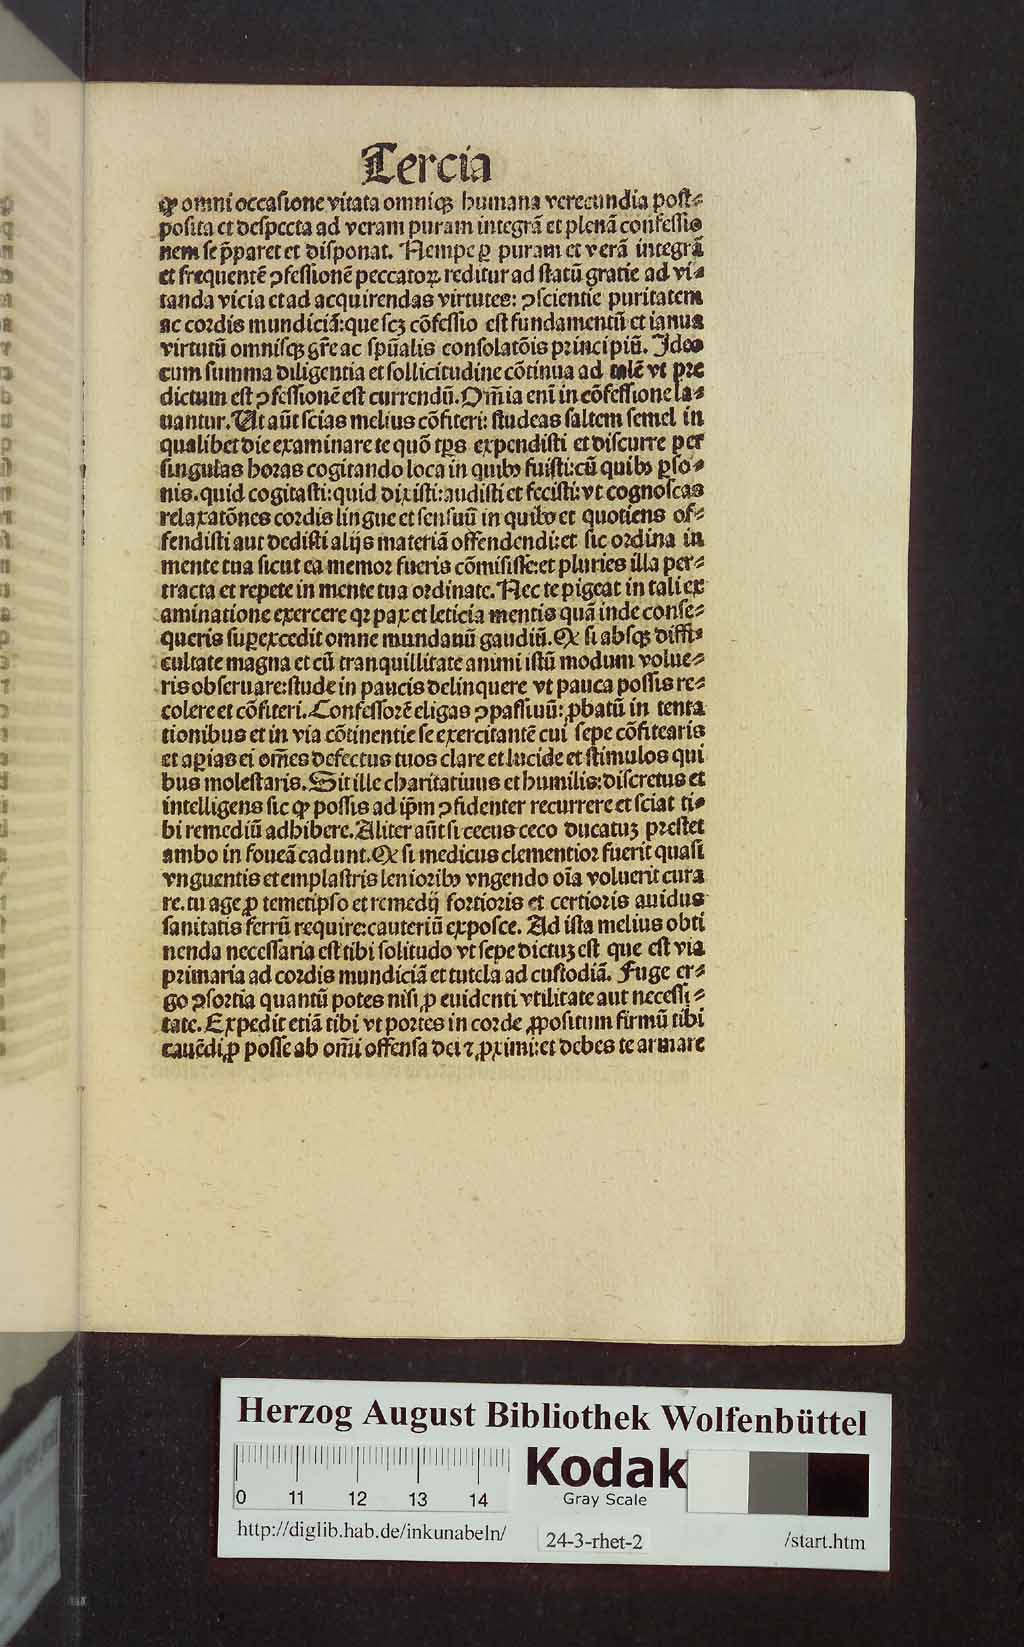 Tercia
ꝙ omni occasione vitata omniqꝫ humana verecundia post⸗
posita et despecta ad veram puram integrã et plenã confessio
nem se p̃paret et disponat. Nempe ꝑ puram et verã integrã
et frequentẽ ꝯfessionẽ peccatoꝝ reditur ad statũ gratie ad vi⸗
tanda vicia et ad acquirendas virtutes: ꝯscientie puritatem
ac cordis mundiciã: que scꝫ cõfessio est fundamentũ et ianua
virtutũ omnisqꝫ gr̃e ac spũalis consolatõis principiũ. Ideo
cum summa diligentia et sollicitudine cõtinua ad talẽ vt pre
dictum est ꝯfessionẽ est currendũ. Om̃ia eni in cõfessione la⸗
uantur. Ut aũt scias melius cõfiteri: studeas saltem semel in
qualibet die examinare te quõ tꝑs expendisti et discurre per
singulas horas cogitando loca in quibꝰ fuisti: cũ quibꝰ ꝑso⸗
nis. quid cogitasti: quid dixisti: audisti et fecisti: vt cognoscas
relaxatõnes cordis lingue et sensuũ in quibꝰ et quotiens of⸗
fendisti aut dedisti alijs materiã offendendi: et sic ordina in
mente tua sicut ea memor fueris cõmisisse: et pluries illa per⸗
tracta et repete in mente tua ordinate. Nec te pigeat in tali ex
aminatione exercere qꝛ pax et leticia mentis quã inde conse⸗
queris suꝑexcedit omne mundanũ gaudiũ. Et si absqꝫ diffi⸗
cultate magna et cũ tranquillitate animi istũ modum volue⸗
ris obseruare: stude in paucis delinquere vt pauca possis re⸗
colere et cõfiteri. Confessorẽ eligas ꝯpassiuũ: ꝓbatũ in tenta
tionibus et in via cõtinentie se exercitantẽ cui sepe cõfitearis
et aꝑias ei om̃es defectus tuos clare et lucide et stimulos qui
bus molestaris. Sit ille charitatiuus et humilis: discretus et
intelligens sic ꝙ possis ad ip̃m ꝯfidenter recurrere et sciat ti⸗
bi remediũ adhibere. Aliter aũt si cecus ceco ducatuꝫ prestet
ambo in foueã cadunt. Et si medicus clementior fuerit quasi
vnguentis et emplastris lenioribꝰ vngendo oĩa voluerit cura
re. tu age ꝓ temetipso et remedij fortioris et certioris auidus
sanitatis ferrũ require: cauteriũ exposce. Ad ista melius obti
nenda necessaria est tibi solitudo vt sepe dictuꝫ est que est via
primaria ad cordis mundiciã et tutela ad custodiã. Fuge er⸗
go ꝯsortia quantũ potes nisi ꝓ euidenti vtilitate aut necessi⸗
tate. Expedit etiã tibi vt portes in corde ꝓpositum firmũ tibi
cauẽdi ꝓ posse ab om̃i offensa dei ⁊ ꝓximi: et debes te armare
Herzog August Bibliothek Wolfenbüttel
Kodak
Gray Scale
0 11 12 13 14
http://diglib.hab.de/inkunabeln/ 24-3-rhet-2 /start.htm